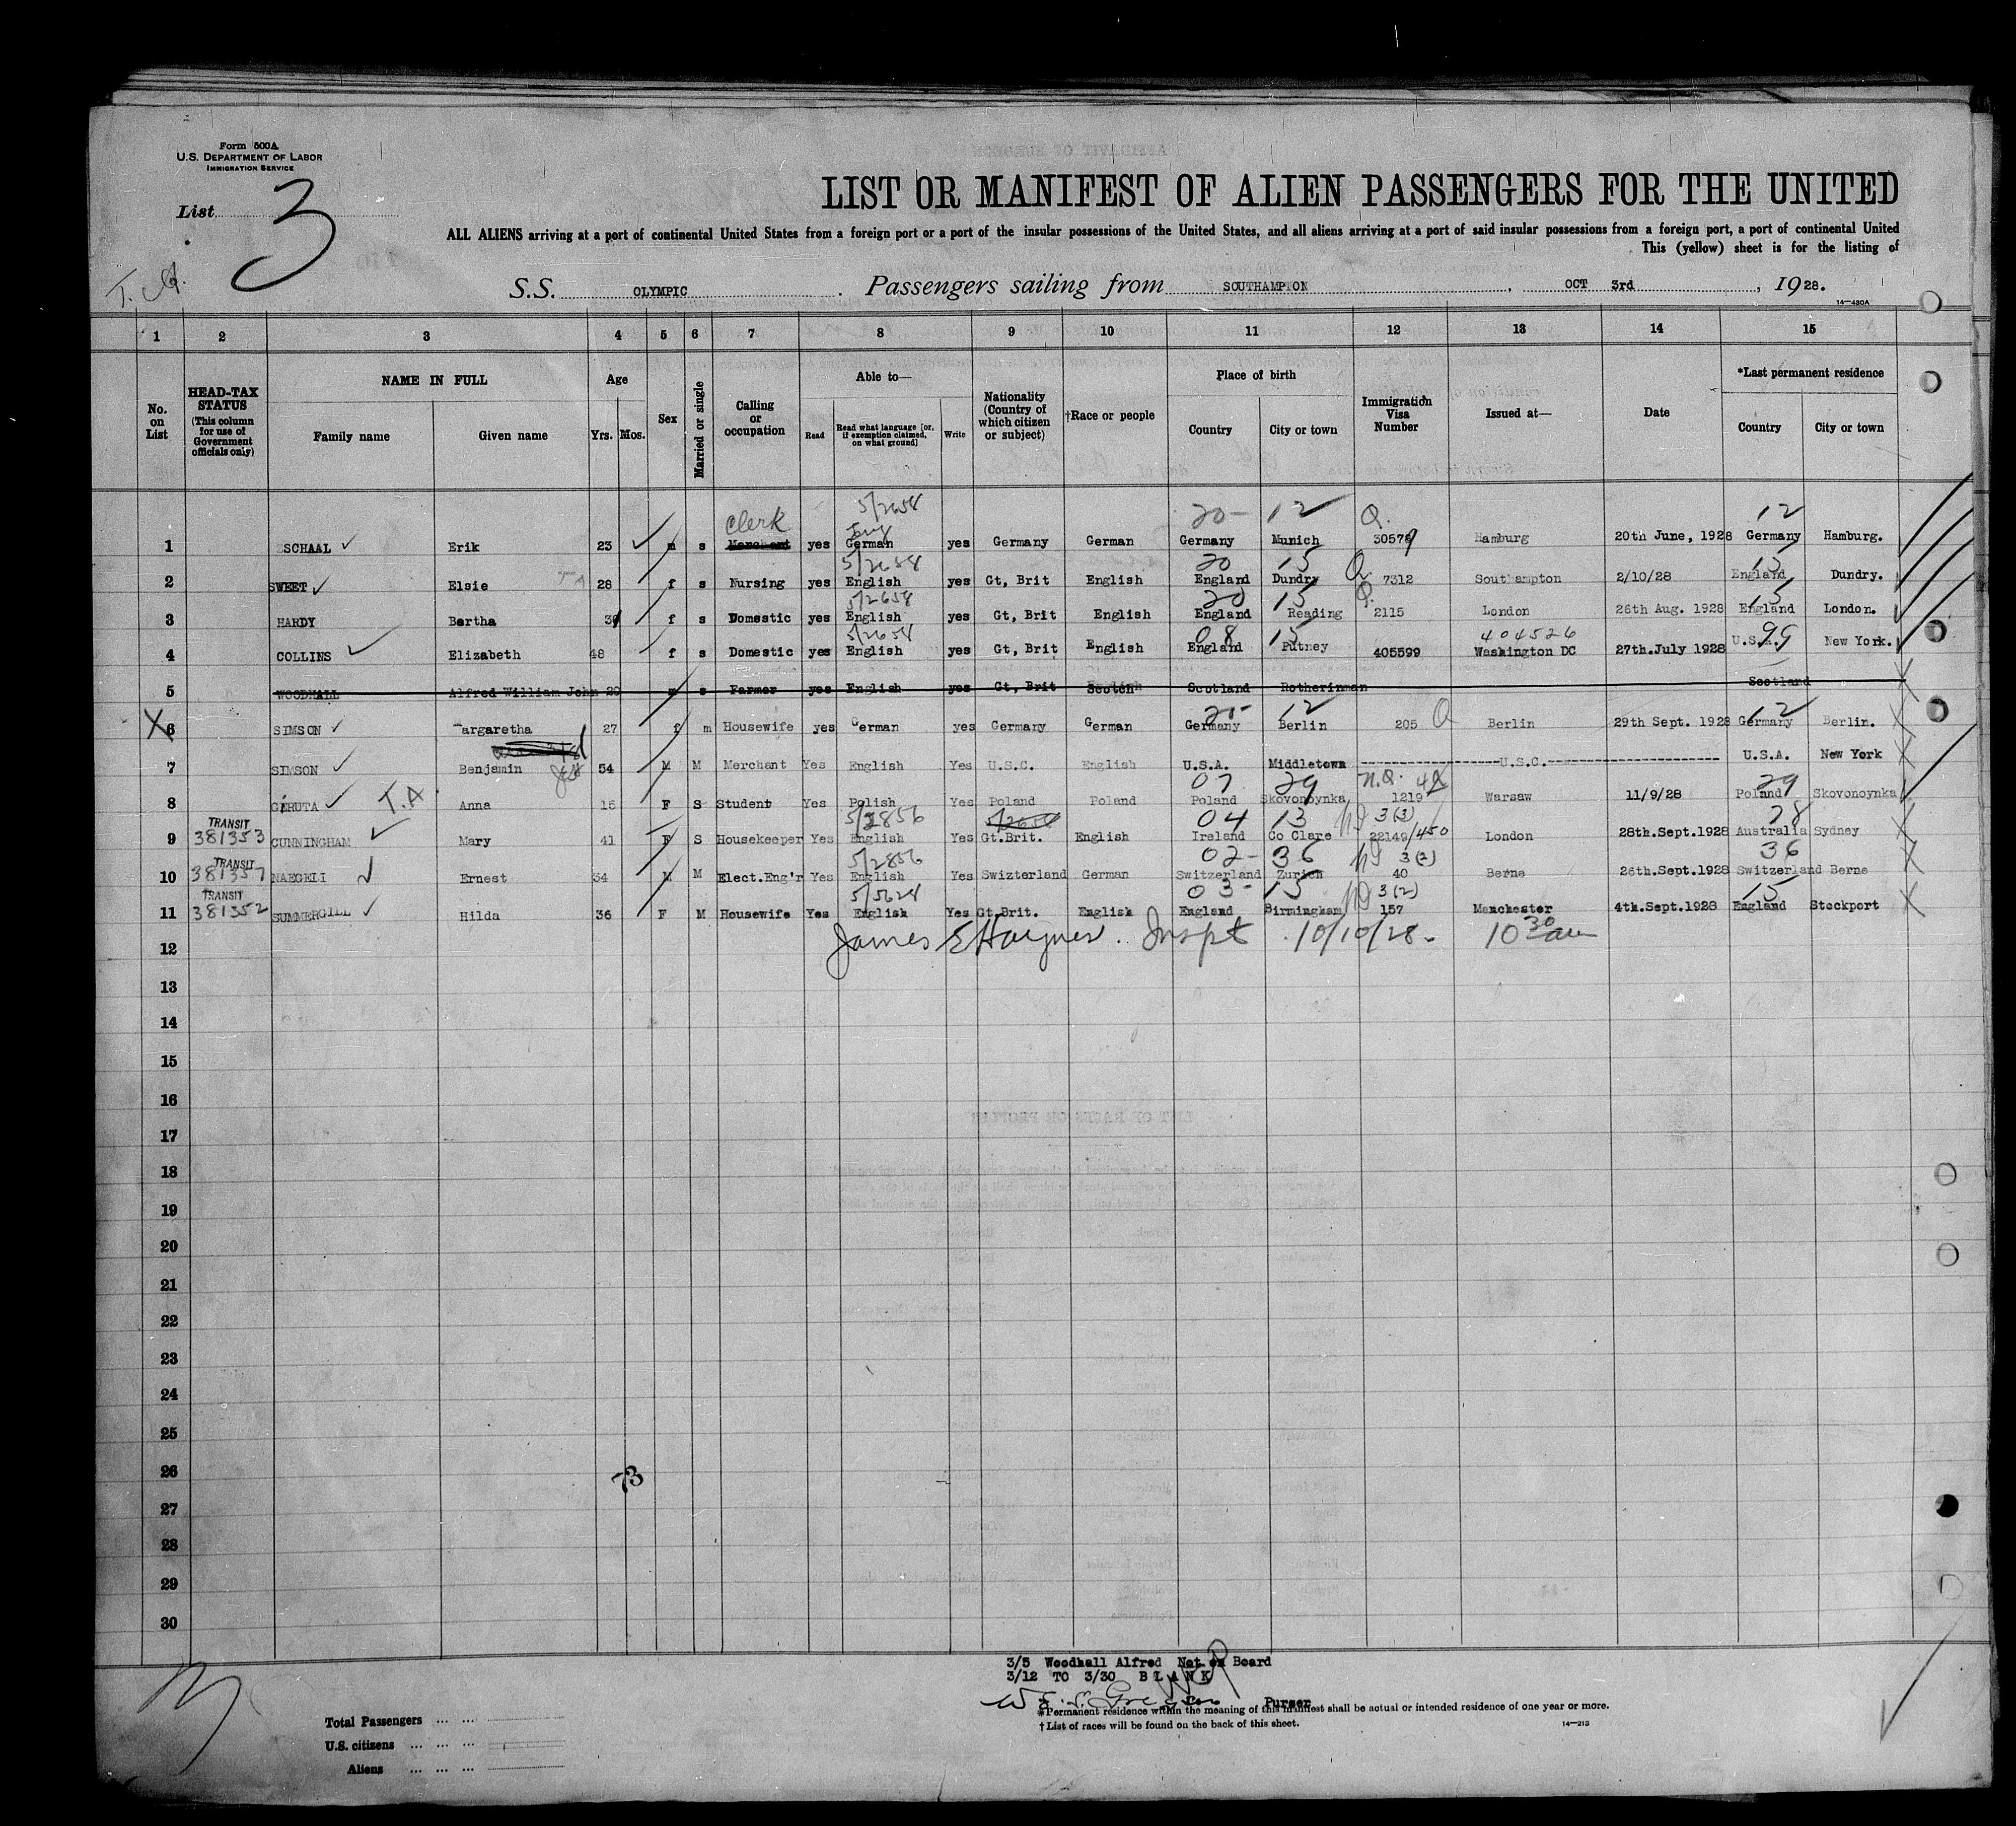 Form 500A
U.S. DEPARTMENT OF LABOR
IMMIGRATION SERVICE
List 3
LIST OR MANIFEST OF ALIEN PASSENGERS FOR THE UNITED
ALL ALIENS arriving at a port of continental United States from a foreign port or a port of the insular possessions of the United States, and all aliens arriving at a port of said insular possessions from a foreign port, a port of continental United
This (yellow) sheet is for the listing of
T. A.
S.S. OLYMPIC. Passengers sailing from SOUTHAMPTON, OCT 3rd, 1928.
14—430A
1 2 3 4 5 6 7 8 9 10 11 12 13 14 15
No. on List
HEAD-TAX STATUS (This column for use of Government officials only)
NAME IN FULL
Family name Given name
Age
Yrs. Mos.
Sex
Married or single
Calling or occupation
Able to—
Read
Read what language [or, if exemption claimed, on what ground]
Write
Nationality (Country of which citizen or subject)
†Race or people
Place of birth
Country City or town
Immigration Visa Number
Issued at—
Date
*Last permanent residence
Country City or town
5/2658 20- 12 Q. 12
Clerk Eng
1 SCHAAL Erik 23 m s Merchant yes German yes Germany German Germany Munich 30579 Hamburg 20th June, 1928 Germany Hamburg.
5/2658 20 15 Q. 15
2 SWEET Elsie TA 28 f s Nursing yes English yes Gt, Brit English England Dundry 7312 Southampton 2/10/28 England Dundry.
5/2658 20 15 Q. 15
3 HARDY Bertha f s Domestic yes English yes Gt, Brit English England Reading 2115 London 26th Aug. 1928 England London.
5/2658 08 15 404526 99
4 COLLINS Elizabeth 48 f s Domestic yes English yes Gt, Brit English England Putney 405599 Washington DC 27th.July 1928 U.S.A. New York.
5 WOODHALL Alfred William John 20 m s Farmer yes English yes Gt, Brit Scotch Scotland Rotherinman Scotland
20- 12 Q 12
X 6 SIMSON argaretha 27 f m Housewife yes German yes Germany German Germany Berlin 205 Berlin 29th Sept. 1928 Germany Berlin.
7 SIMSON Benjamin 54 M M Merchant Yes English Yes U.S.C. English U.S.A. Middletown U.S.C. U.S.A. New York
07 29 N.Q. 29
8 GARUTA T.A. Anna 15 F S Student Yes Polish Yes Poland Poland Poland Skovonoynka 1219 Warsaw 11/9/28 Poland Skovonoynka
TRANSIT 5/2856 04 13 3(3) 28
381353
9 CUNNINGHAM Mary 41 F S Housekeeper Yes English Yes Gt.Brit. English Ireland Co Clare 22149/450 London 28th.Sept.1928 Australia Sydney
TRANSIT 5/2856 02- 36 3(3) 36
381357
10 NAEGELI Ernest 34 M M Elect.Eng'r Yes English Yes Swizterland German Switzerland Zurich 40 Berne 26th.Sept.1928 Switzerland Berne
TRANSIT 5/5624 03- 15 3(2) 15
381352
11 SUMMERGILL Hilda 36 F M Housewife Yes English Yes Gt.Brit. English England Birmingham 157 Manchester 4th.Sept.1928 England Stockport
12 James E Inspt 10/10/28. 10 30 am
13
14
15
16
17
18
19
20
21
22
23
24
25
26
73
27
28
29
30
3/5 Woodhall Alfred Not on Board
3/12 TO 3/30 BLANK
Purser
*Permanent residence within the meaning of this manifest shall be actual or intended residence of one year or more.
†List of races will be found on the back of this sheet.
14—213
Total Passengers
U.S. citizens
Aliens